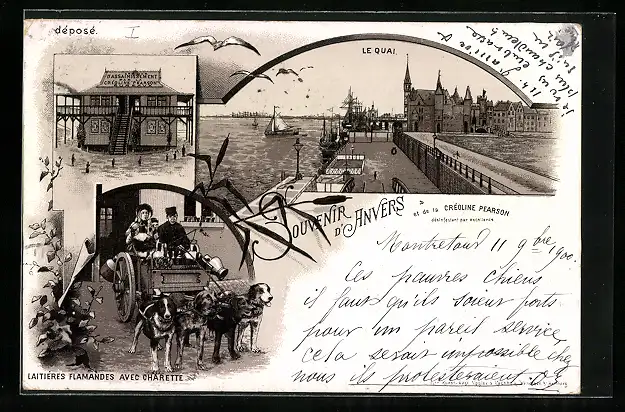 déposé.
I
D'ASSAINISSEMENT
CRÉOLINE PEARSON
LE QUAI.
SOUVENIR
D'ANVERS
et de la CRÉOLINE PEARSON
désinfectant par excellence
Montretout 11 9bre 1900.
Ces pauvres chiens
il faut qu'ils soient forts
pour un pareil service,
cela serait impossible chez
nous ils protesteraient
LAITIÈRES FLAMANDES AVEC CHARETTE